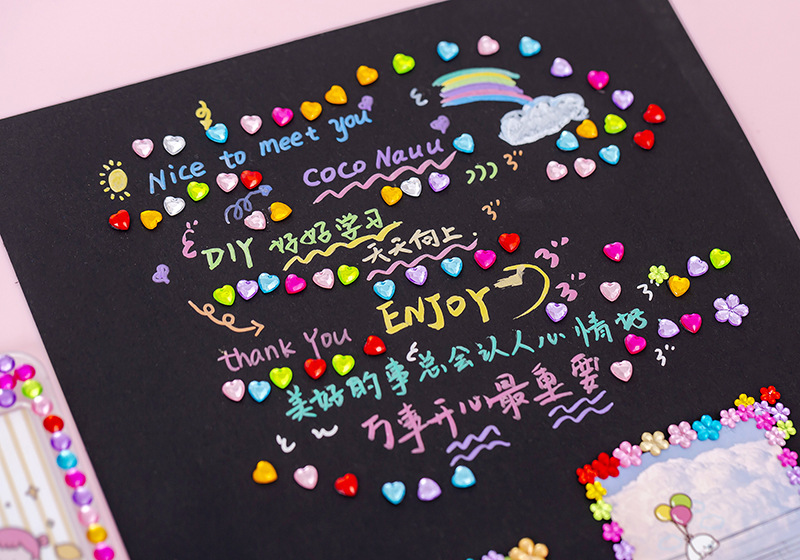 Nice to meet you
COCO Nauu
DIY 好好学习
天天向上.
ENJOY
thank You
美好的事总会认人心情好
万事开心最重要